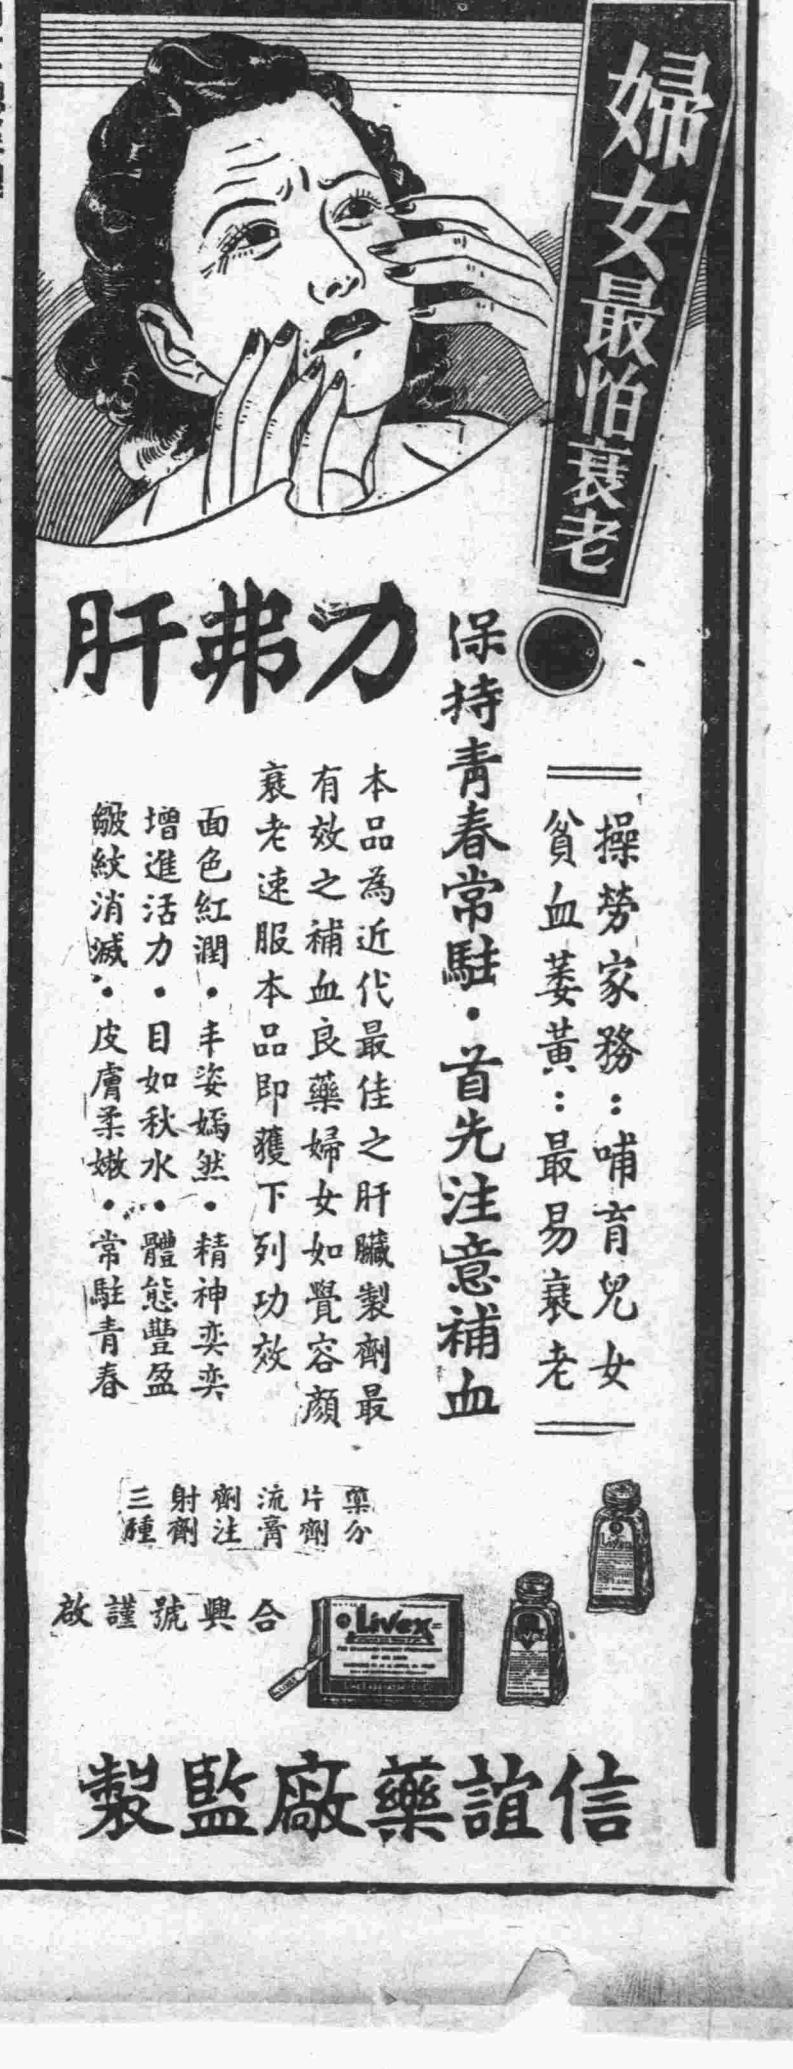 婦女最怕衰老
操勞家務：哺育兒女
貧血萎黃：最易衰老
保持青春常駐·首先注意補血
力弗肝
本品為近代最佳之肝臟製劑最
有效之補血良藥婦女如覺容顏
衰老速服本品即獲下列功效
面色紅潤·丰姿嫣然·精神奕奕
增進活力·目如秋水·體態豐盈
皺紋消滅·皮膚柔嫩·常駐青春
藥分
片劑
流膏
劑注
射劑
三種
Livex
合興號謹啟
信誼藥廠監製